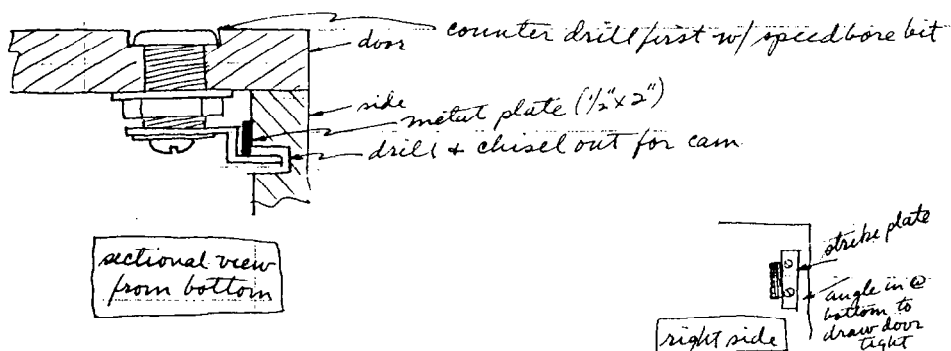 counter drill first w/ speedbore bit
door
side
metal plate (1/2"x2")
drill + chisel out for cam
sectional view
from bottom
strike plate
angle in @
bottom to
draw door
tight
right side